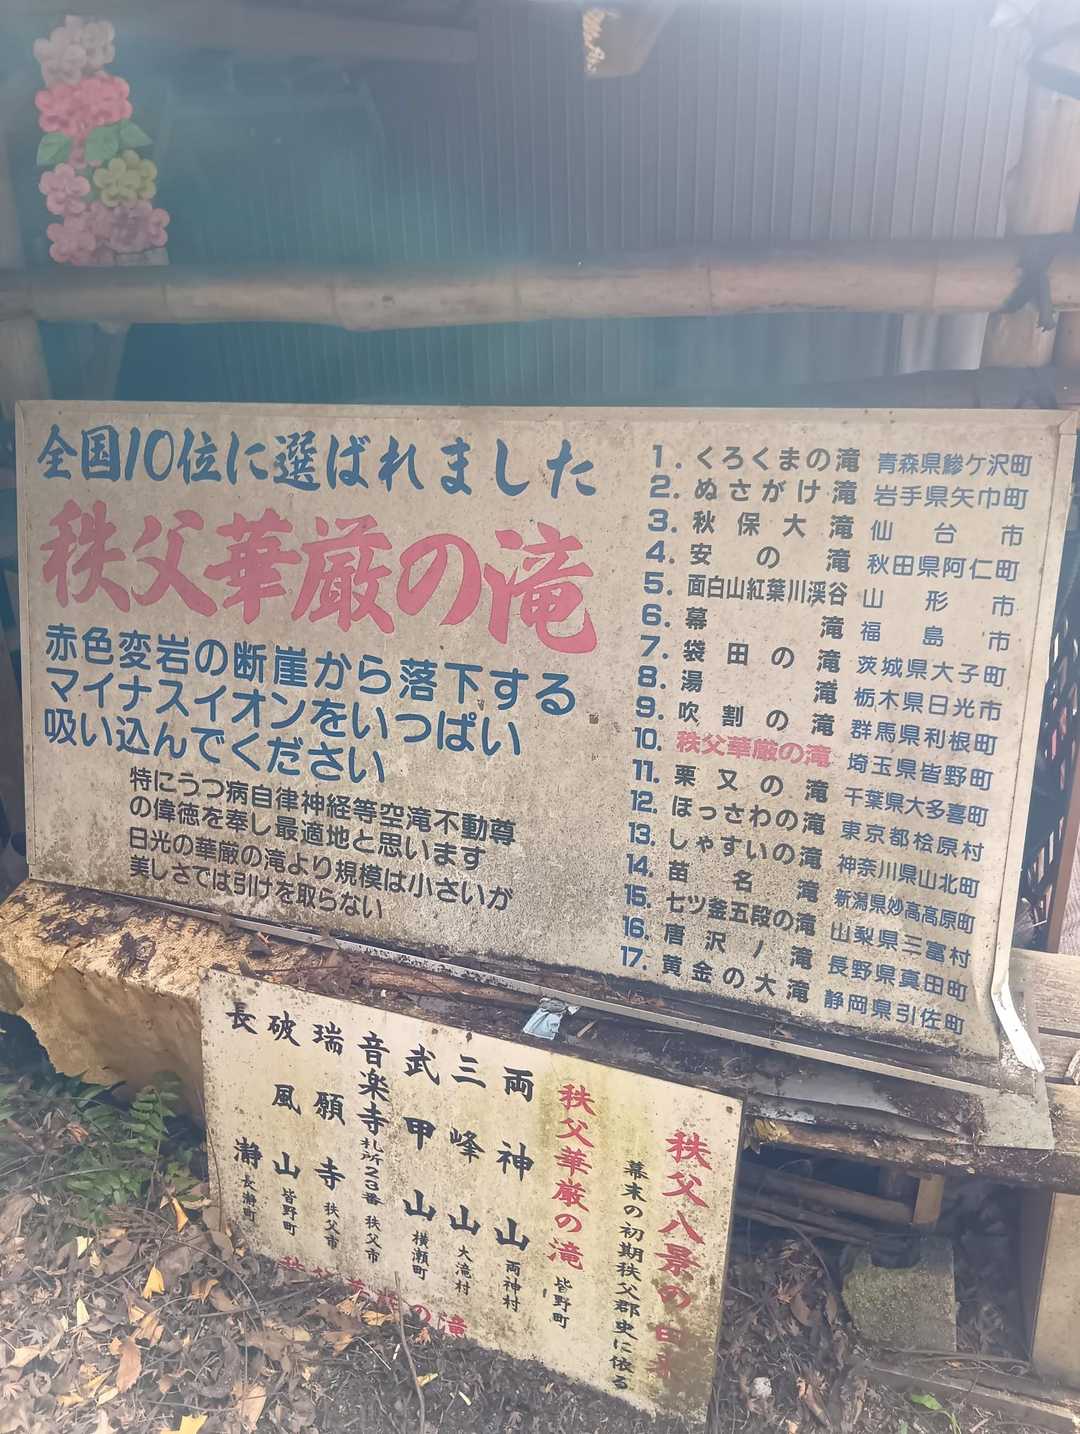 全国10位に選ばれました
秩父華厳の滝
赤色変岩の断崖から落下する
マイナスイオンをいっぱい
吸い込んでください
特にうつ病自律神経等空滝不動尊
の偉徳を奉し最適地と思います
日光の華厳の滝より規模は小さいが
美しさでは引けを取らない
1. くろくまの滝 青森県鰺ケ沢町
2. ぬさがけ滝 岩手県矢巾町
3. 秋保大滝 仙台市
4. 安の滝 秋田県阿仁町
5. 面白山紅葉川渓谷 山形市
6. 幕滝 福島市
7. 袋田の滝 茨城県大子町
8. 湯滝 栃木県日光市
9. 吹割の滝 群馬県利根町
10. 秩父華厳の滝 埼玉県皆野町
11. 粟又の滝 千葉県大多喜町
12. ほっさわの滝 東京都桧原村
13. しゃすいの滝 神奈川県山北町
14. 苗名滝 新潟県妙高高原町
15. 七ツ釜五段の滝 山梨県三富村
16. 唐沢ノ滝 長野県真田町
17. 黄金の大滝 静岡県引佐町
秩父八景の
幕末の初期秩父郡史に依る
秩父華厳の滝 皆野町
両神山 両神村
三峰山 大滝村
武甲山 横瀬町
音楽寺 札所23番 秩父市
瑞願寺 秩父市
破風山 皆野町
長瀞 長瀞町
の滝